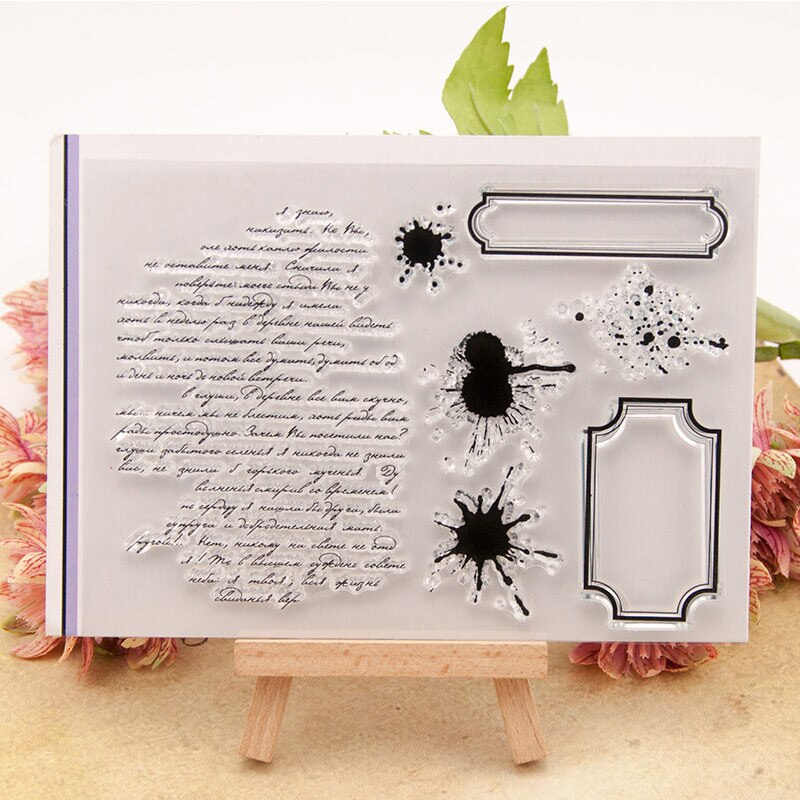 я знаю,
накидить. Но Вы,
оле хоть каплю жалости
не оставите меня. Сначала я
поверьте: моего стыда Вы не у
никогда, когда б надежду я имела
хоть в неделю раз в деревне нашей видеть
чтоб только слышать ваши речи,
молвить, и потом все думать, думать об од
и день и ночь до новой встречи.
в глуши, в деревне все вам скучно,
мы... ничем мы не блестим, хоть рады вам
рады простодушно. Зачем Вы посетили нас?
глуши забытого селенья я никогда не знала
вас, не знала б горького мученья. Ду
волненья смирив со временем!
по сердцу я нашла бы друга, была
супруга и добродетельная мать.
ругой!.. Нет, никому на свете не отд
я! То в вышнем суждено совете
неба: я твоя; вся жизнь
свиданья вер